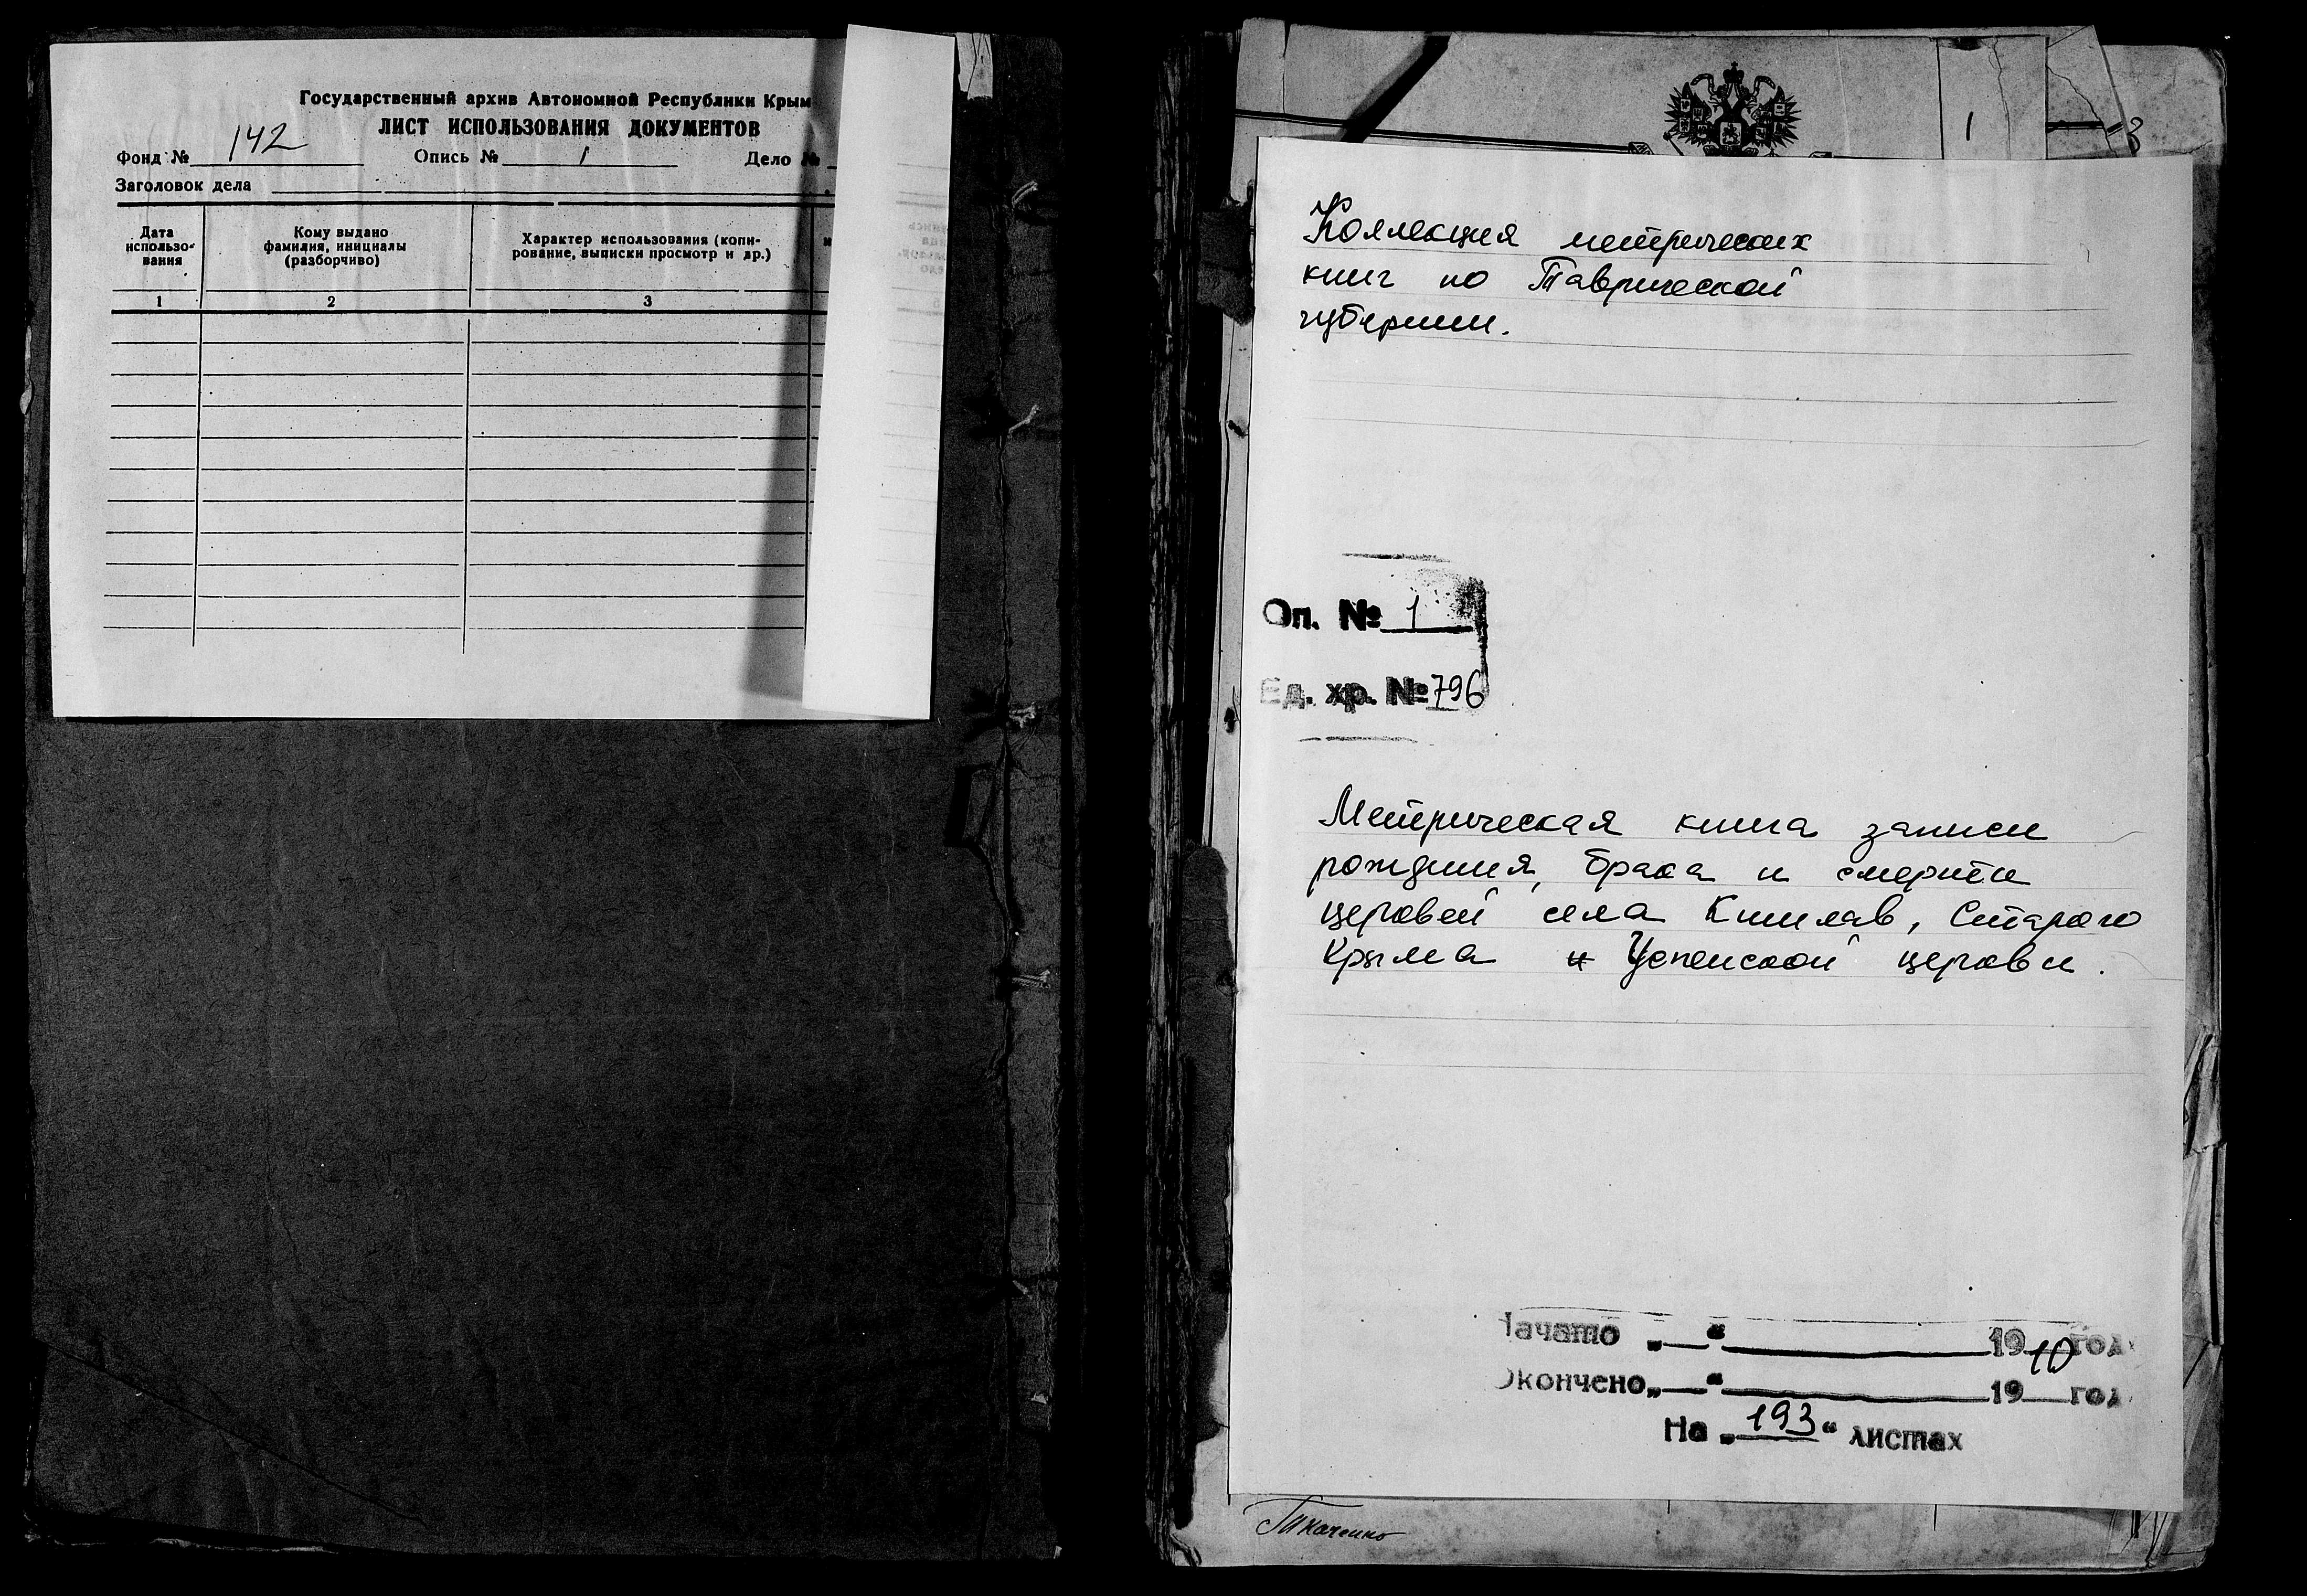 Государственный архив Автономной Республики Крым
ЛИСТ ИСПОЛЬЗОВАНИЯ ДОКУМЕНТОВ
Фонд № 142 Опись № 1 Дело №
Заголовок дела
Дата использо-вания
Кому выдано фамилия, инициалы (разборчиво)
Характер использования (копи-рование, выписки просмотр и др.)
1 2 3
1
Коллекция метрических
книг по Таврической
губернии.
Оп. № 1
Ед. хр. № 796
Метрическая книга записи
рождения, брака и смерти
церквей села Кишлав, Старого
Крыма и Успенской церкви.
Начато „ “ 1910 год
Окончено „ “ 19 год
На „193“ листах
Ткаченко